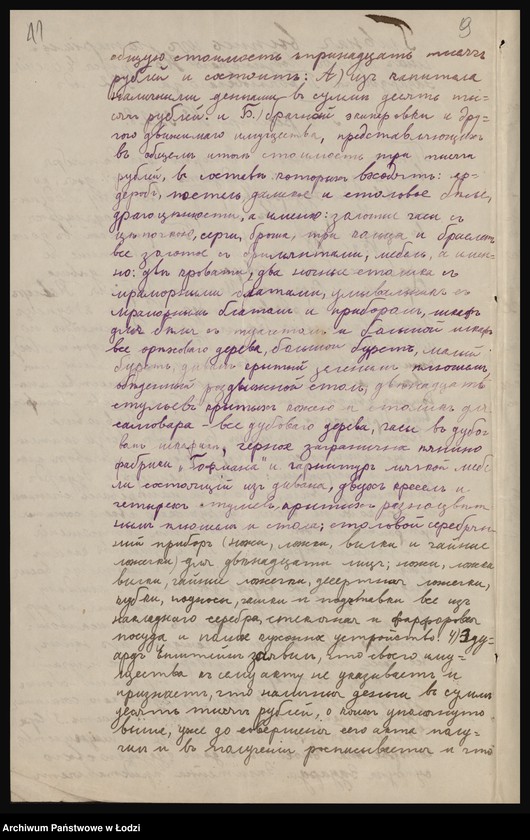 41 9
общую стоимость тринадцать тысячъ
рублей и состоитъ: А) изъ капитала
наличными деньгами въ сумме десять ты-
сячъ рублей. и Б.) брачной экипировки и дру-
гого движимаго имущества, представляющихъ
въ общемъ итоге стоимость три тысячи
рублей, въ составъ которыхъ входятъ: гар-
деробъ, постель дамское и столовое белье,
драгоценности, а именно: золотые часы съ
цепочкою, серги, брошь, три кольца и браслетъ
все золотое съ брильянтами, мебель, а имен-
но: две кровати, два ночные столика съ
мраморными блатами, умывальникъ съ
мраморнымъ блатомъ и приборомъ, шкафъ
для белья съ туалетомъ и большой шкафъ
все орехового дерева, большой буфетъ, малый
буфетъ, диванъ крытый зеленымъ плюшемъ,
обеденный раздвижной столъ, двенадцать
стульевъ крытыхъ кожею и столикъ для
самовара - все дубоваго дерева, часы въ дубо-
вомъ шкафчике, черное заграничное пianino
фабрики „Гофмана" и гарнитуръ мягкой мебе-
ли состоящiй изъ дивана, двухъ креселъ и
четырехъ стульевъ крытыхъ разноцвет-
нымъ плюшемъ и стола; столовой серебрян-
ный приборъ (ножи, ложки, вилки и чайные
ложечки) для двенадцати лицъ; ножи, ложки
вилки, чайные ложечки, десертныя ложечки,
кубки, подносы, чашки и подставки все изъ
накладнаго серебра, стеклоная и фарфоровая
посуда и полное кухонное устройство. 4) Эду-
ардъ заявилъ, что своего иму-
щества къ сему акту не указываетъ и
признаетъ, что наличныя деньги въ сумме
десять тысячъ рублей, о коихъ упомянуто
выше, уже до совершенiя сего акта полу-
чилъ и въ полученiи росписывается и что
Archiwum Państwowe w Łodzi